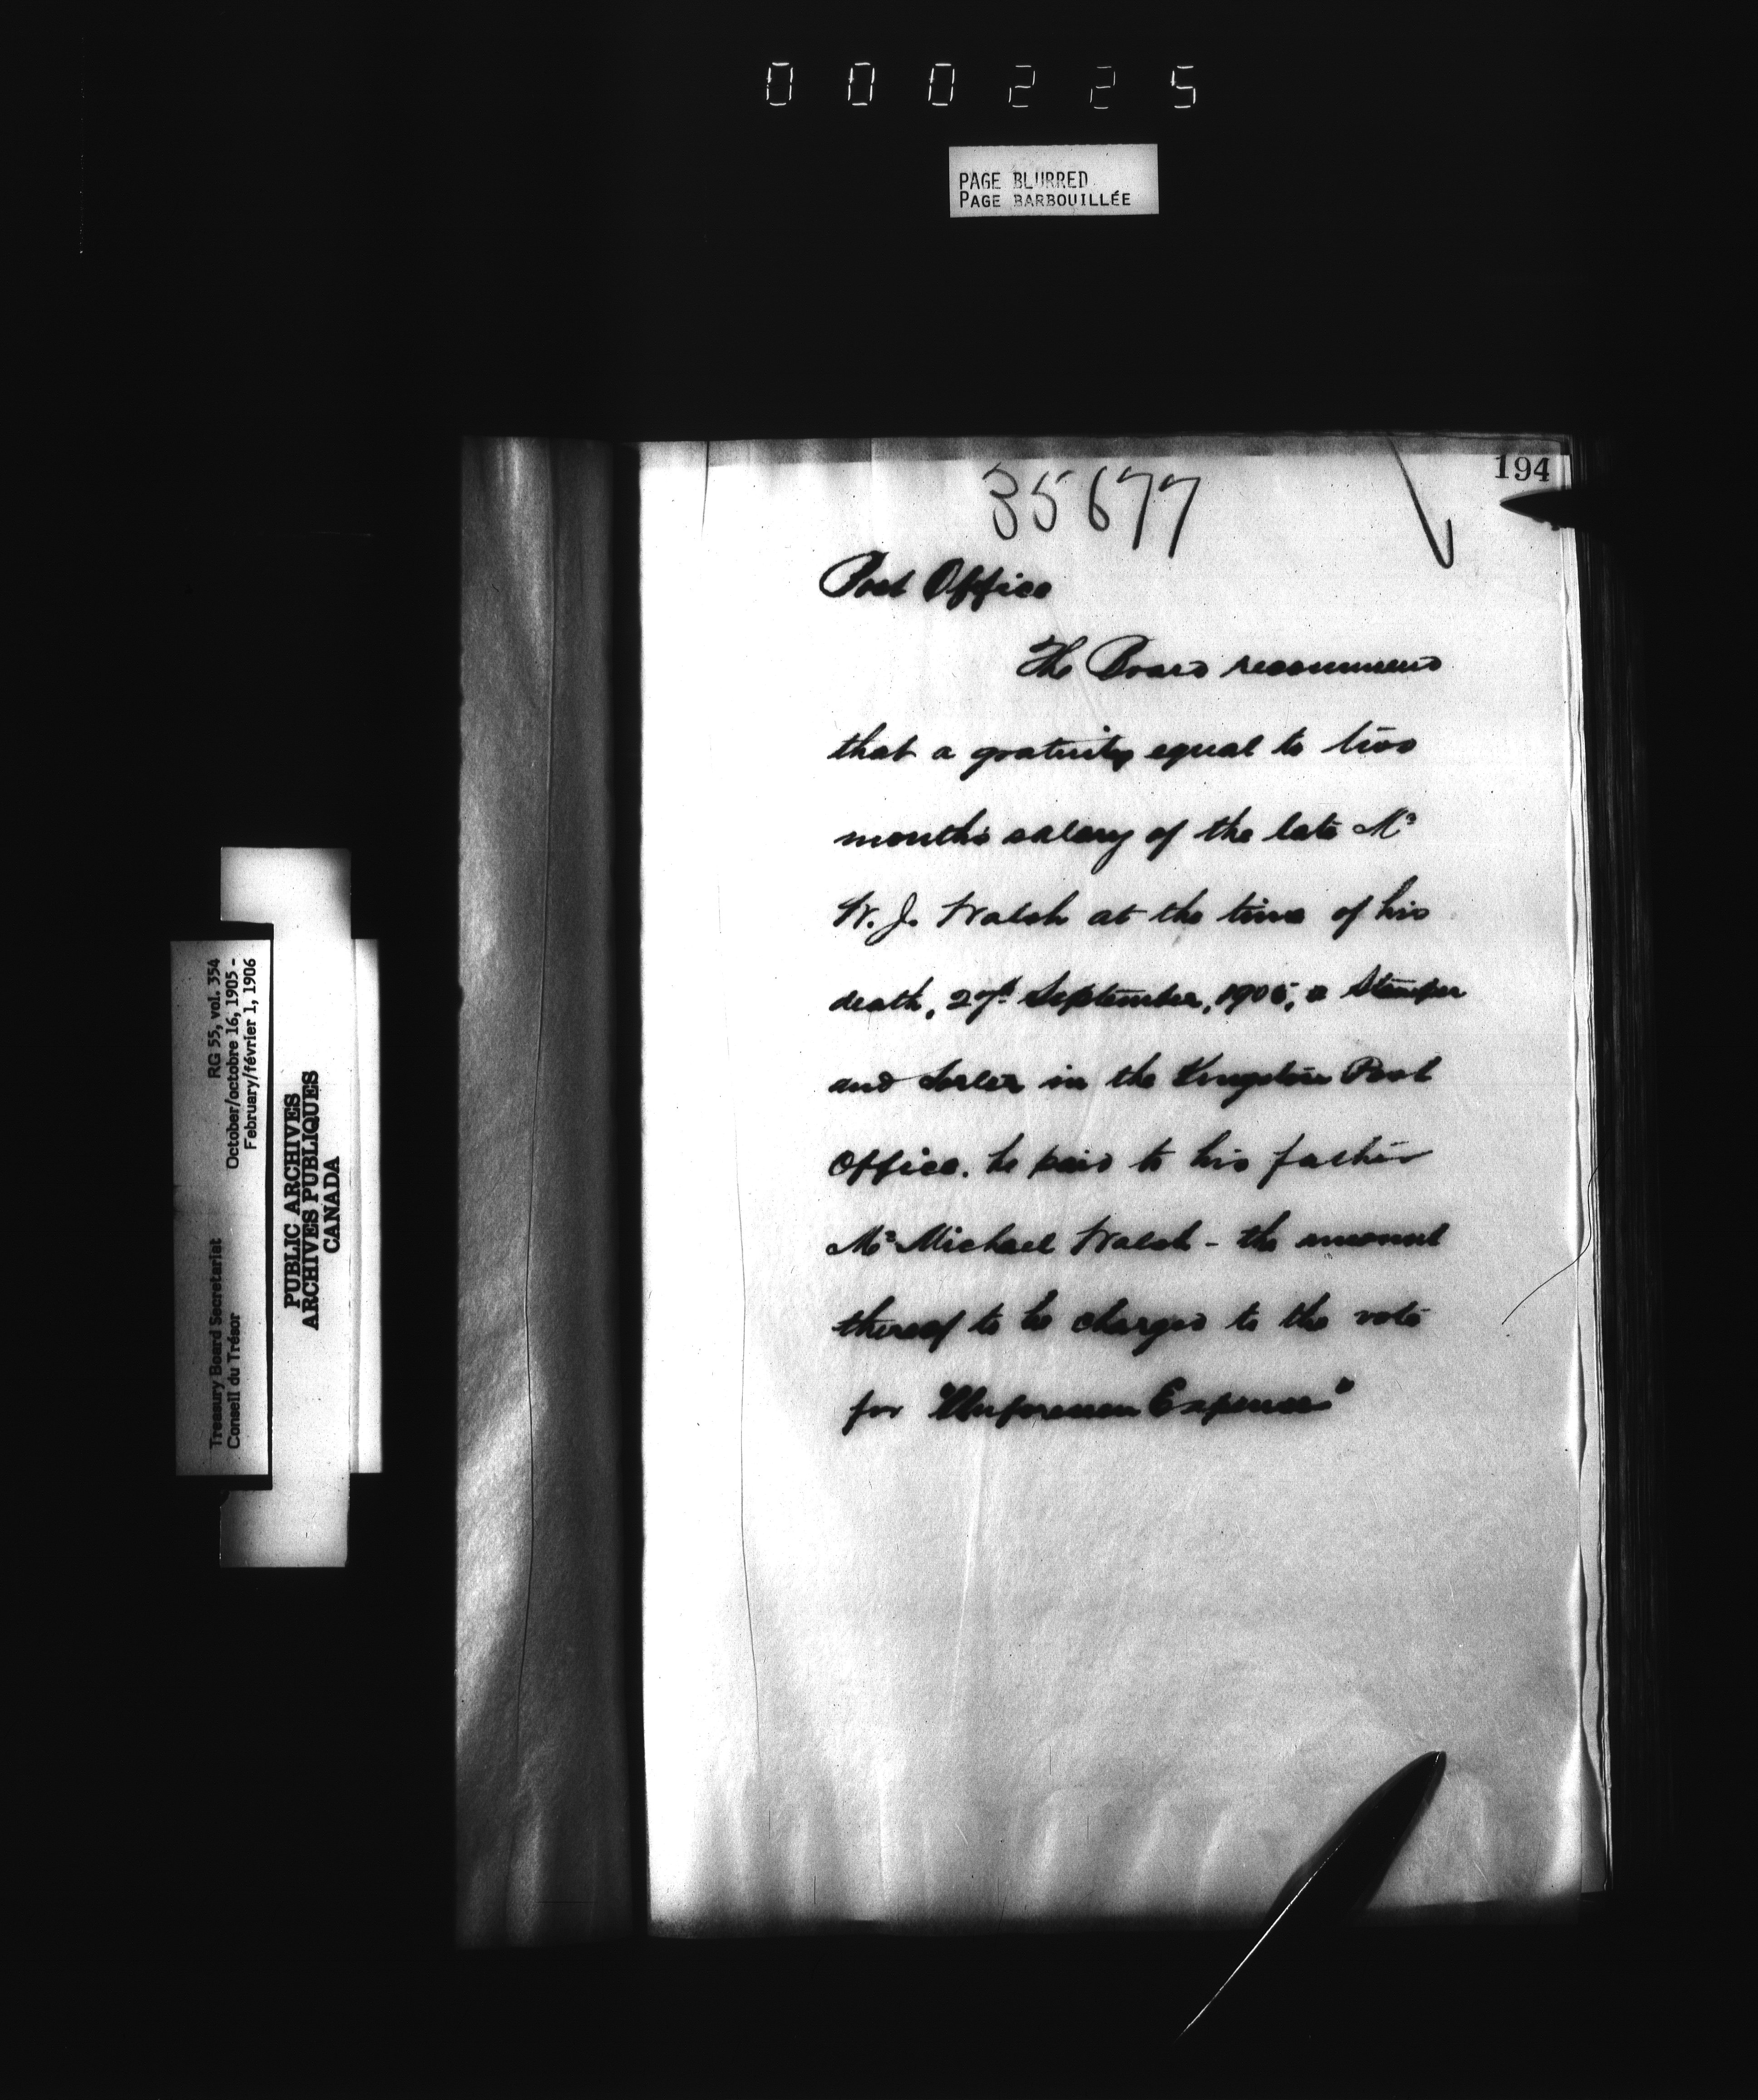 000225
PAGE BLURRED
PAGE BARBOUILLÉE
194
35677
Post Office
The Board recommend
that a gratuity equal to two
months salary of the late Mr
W. J. Walsh at the time of his
death, 27th September, 1905, a Stamper
and Sorter in the Kingston Post
Office. be paid to his father
Mr Michael Walsh - the amount
thereof to be charged to the vote
for "Unforeseen Expenses"
Treasury Board Secretariat RG 55, vol. 354
Conseil du Trésor October/octobre 16, 1905 -
February/février 1, 1906
PUBLIC ARCHIVES
ARCHIVES PUBLIQUES
CANADA